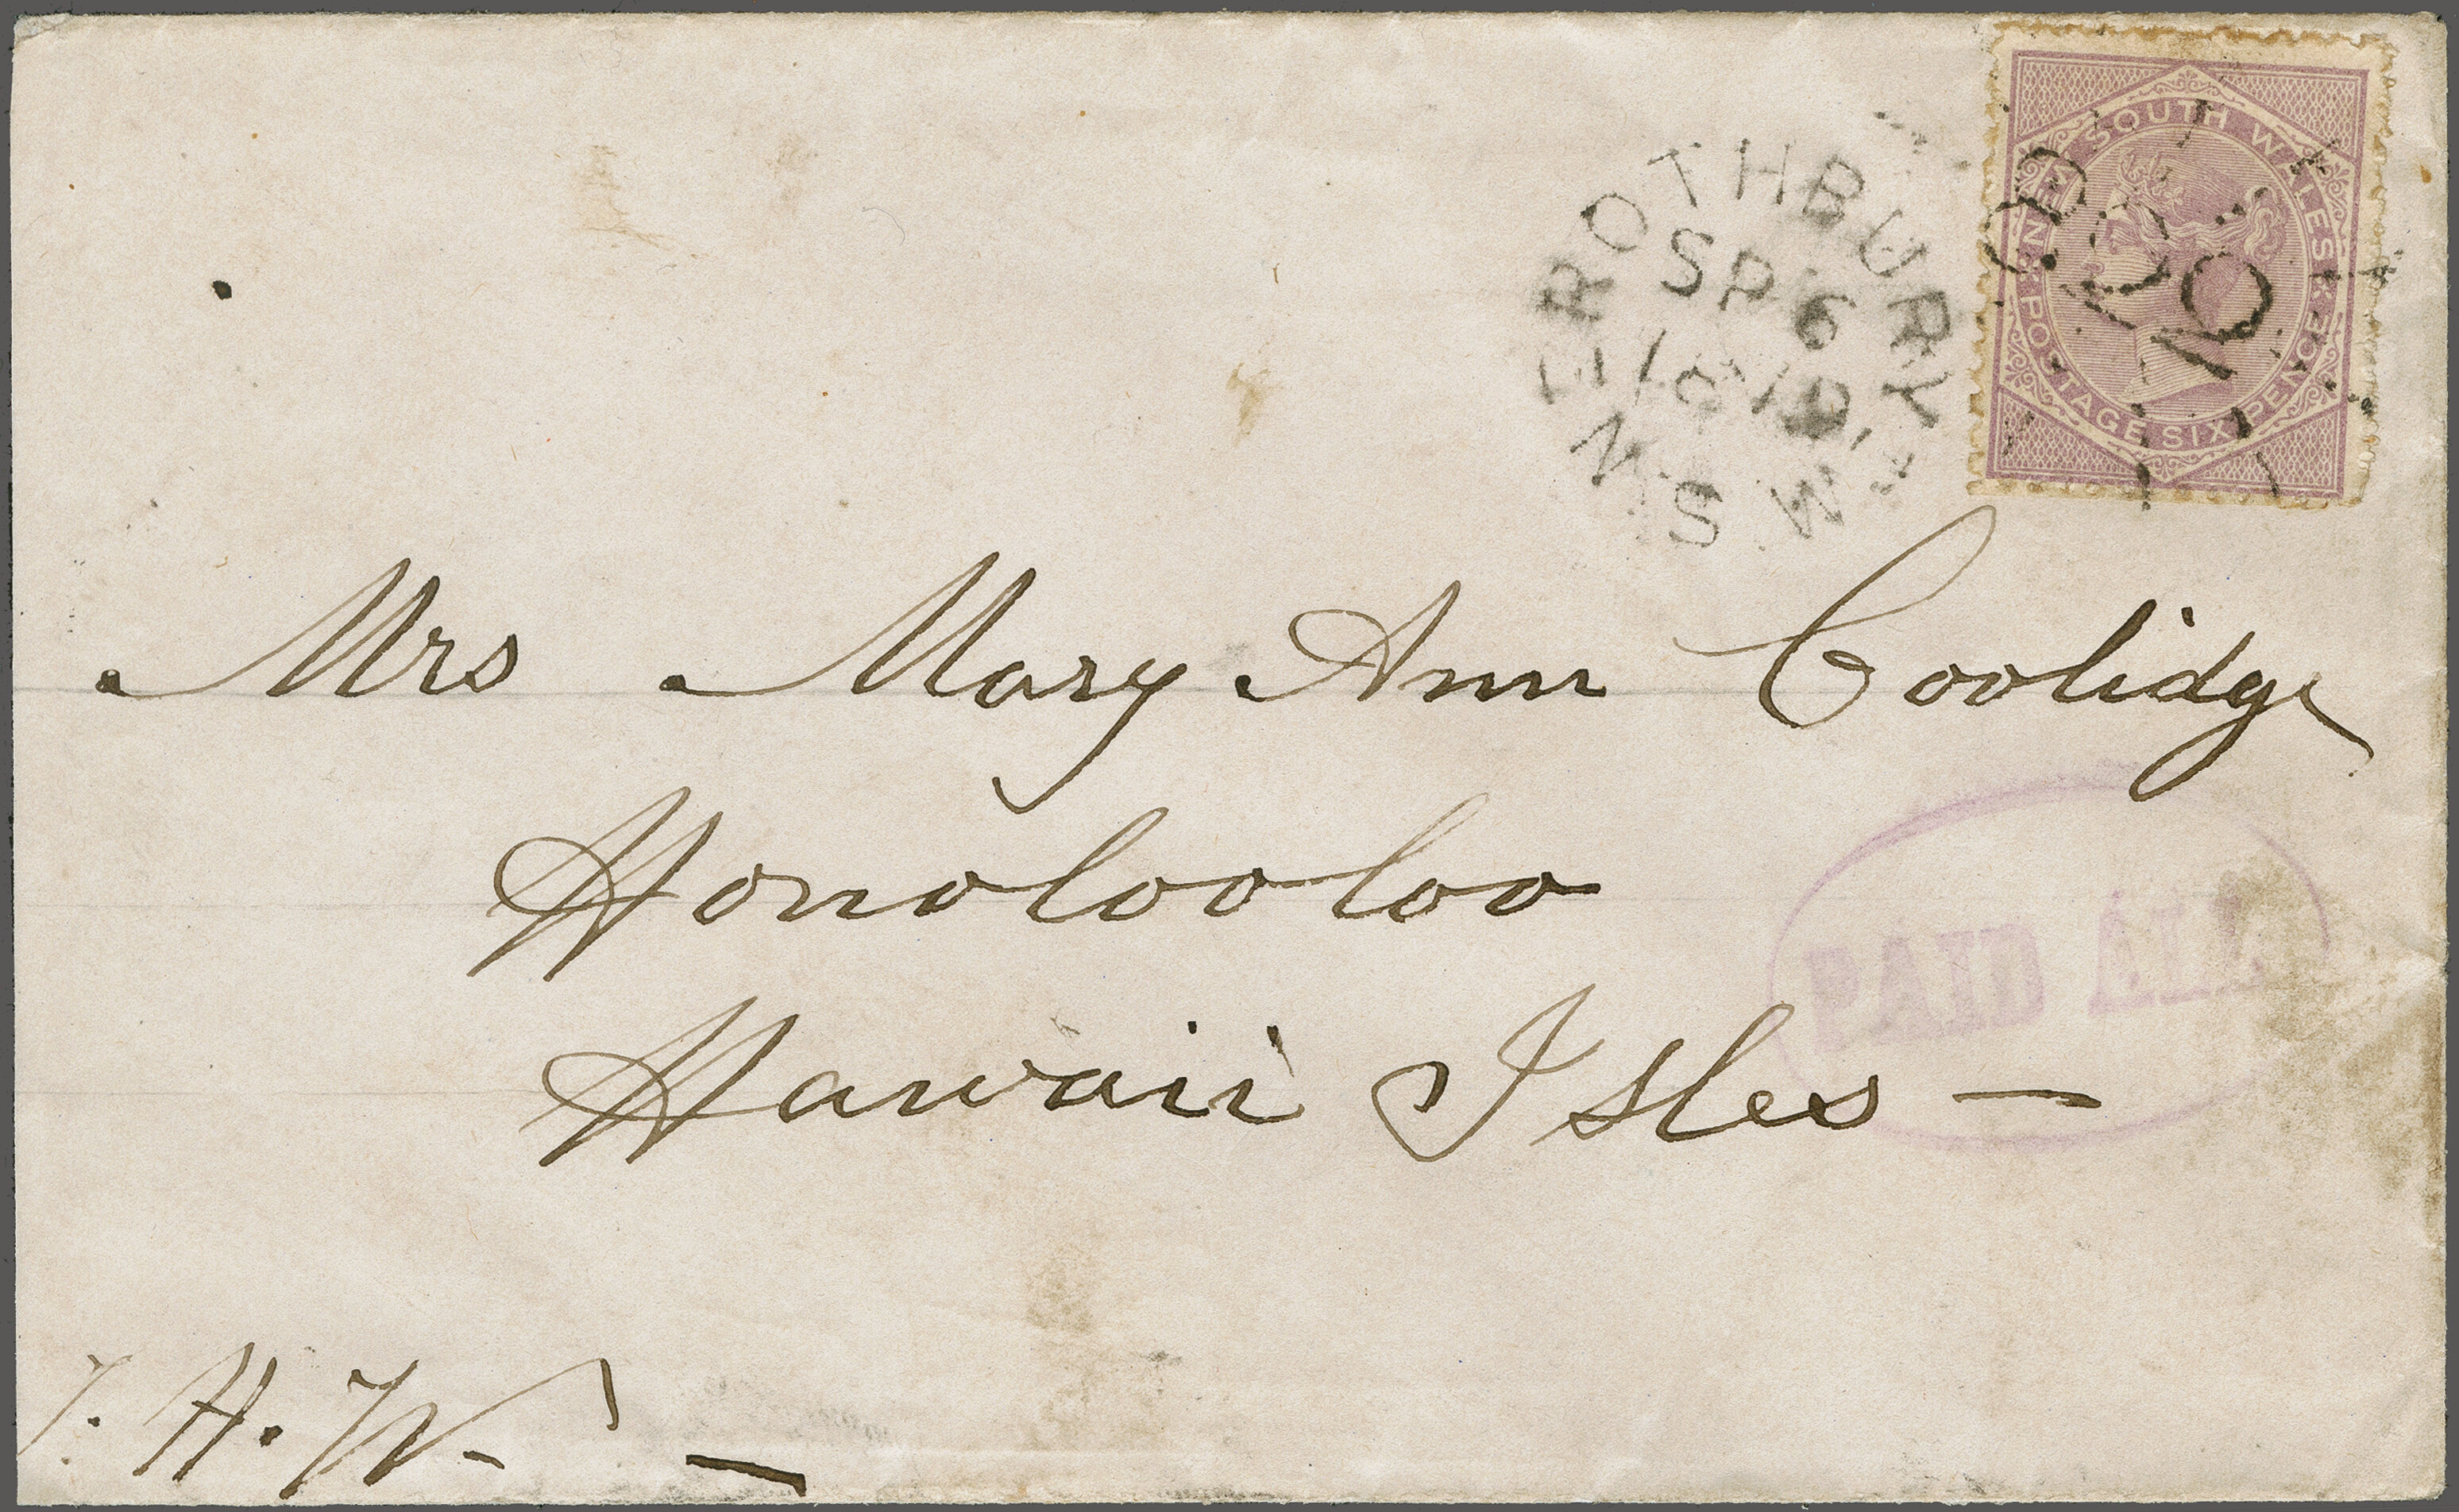 NEW SOUTH WALES
POSTAGE SIX PENCE
ROTHBURY
SP 6
N.S.W
Mrs Mary Ann Coolidge
Honolooloo
Hawaii Isles —
PAID ALL
H. W. —